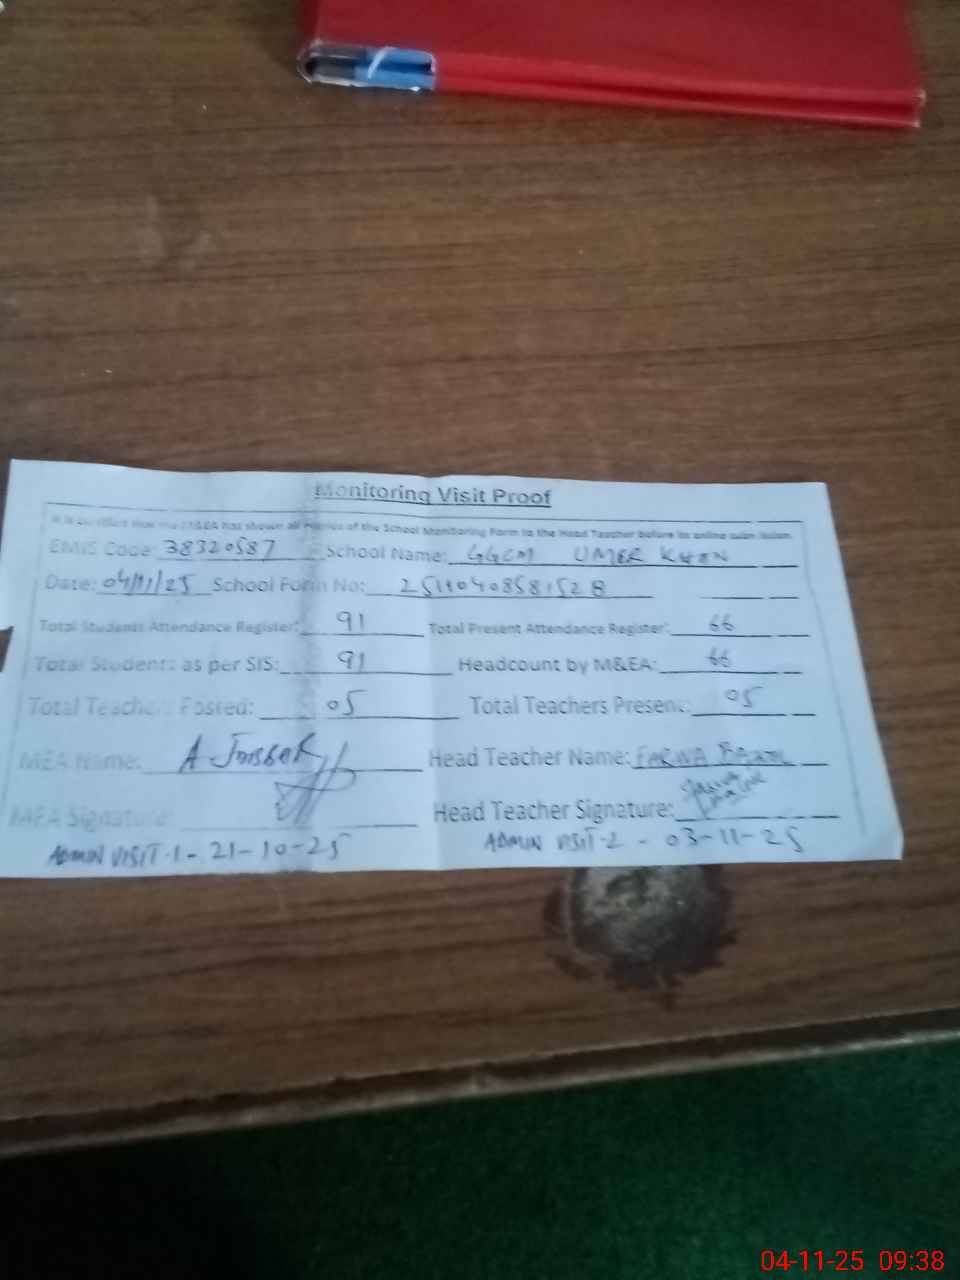 Monitoring Visit Proof
It is certified that the M&EA has shown all entries of the School Monitoring Form to the Head Teacher before its online submission.
EMIS Code: 38320587 School Name: GGCM UMER KHAN
Date: 04/11/25 School Form No:
Total Students Attendance Register: 91 Total Present Attendance Register: 66
Total Students as per SIS: 91 Headcount by M&EA: 66
Total Teachers Posted: 05 Total Teachers Present: 05
MEA Name: A. Head Teacher Name: FARWA
MEA Signature: Head Teacher Signature:
ADMIN VISIT-1 - 21-10-25 ADMIN VISIT-2 - 03-11-25
04-11-25 09:38